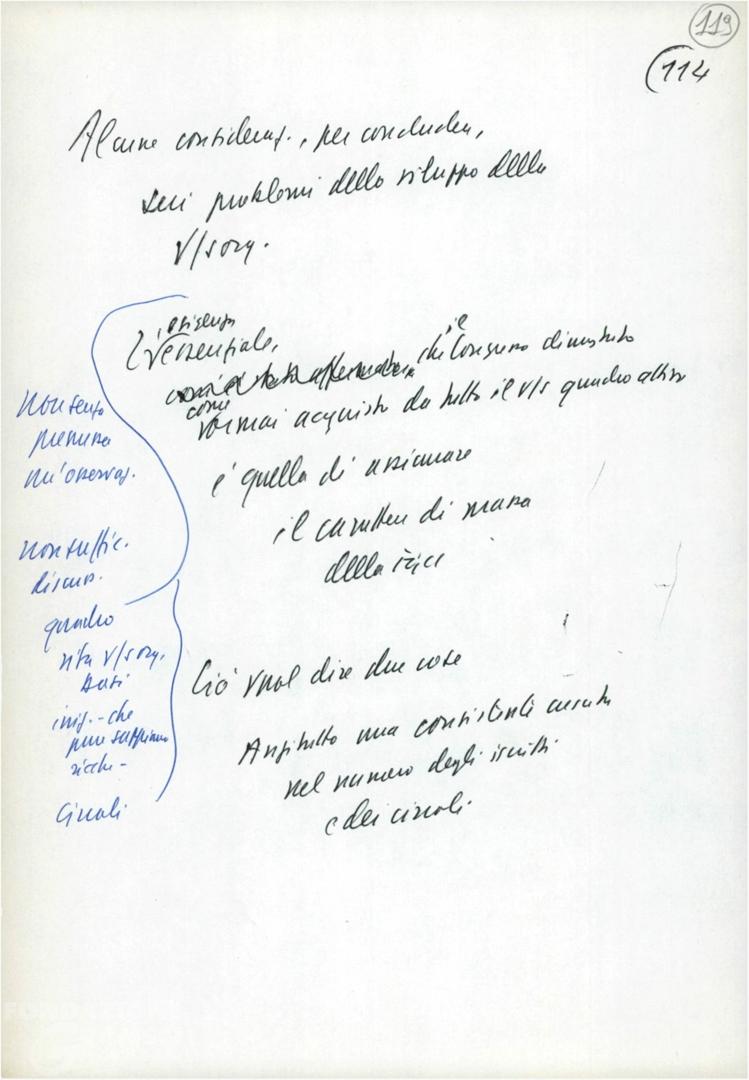 119
(114
Alcune consideraz., per concludere,
sui problemi dello sviluppo della
v/s org.
esigenza
L'essenziale,
che il Congresso dimostrato
come
ormai acquisito da tutto il v/s quadro attivo
è quella di assicurare
il carattere di massa
della FGCI
Ciò vuol dire due cose
Anzitutto una consistente crescita
nel numero degli iscritti
e dei circoli.
non senza
premessa
un'osservaz.
non suffic.
discuss.
quadro
vita v/s org.
dati
iniz. - che
pure sappiamo
ricche -
Circoli